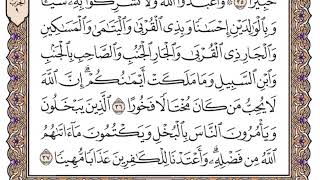 خَبِيرًا ٣٥ وَٱعْبُدُوا۟ ٱللَّهَ وَلَا تُشْرِكُوا۟ بِهِۦ شَيْـًٔا
وَبِٱلْوَٰلِدَيْنِ إِحْسَٰنًا وَبِذِى ٱلْقُرْبَىٰ وَٱلْيَتَٰمَىٰ وَٱلْمَسَٰكِينِ
وَٱلْجَارِ ذِى ٱلْقُرْبَىٰ وَٱلْجَارِ ٱلْجُنُبِ وَٱلصَّاحِبِ بِٱلْجَنۢبِ
وَٱبْنِ ٱلسَّبِيلِ وَمَا مَلَكَتْ أَيْمَٰنُكُمْ إِنَّ ٱللَّهَ
لَا يُحِبُّ مَن كَانَ مُخْتَالًا فَخُورًا ٣٦ ٱلَّذِينَ يَبْخَلُونَ
وَيَأْمُرُونَ ٱلنَّاسَ بِٱلْبُخْلِ وَيَكْتُمُونَ مَآ ءَاتَىٰهُمُ
ٱللَّهُ مِن فَضْلِهِۦ وَأَعْتَدْنَا لِلْكَٰفِرِينَ عَذَابًا مُّهِينًا ٣٧